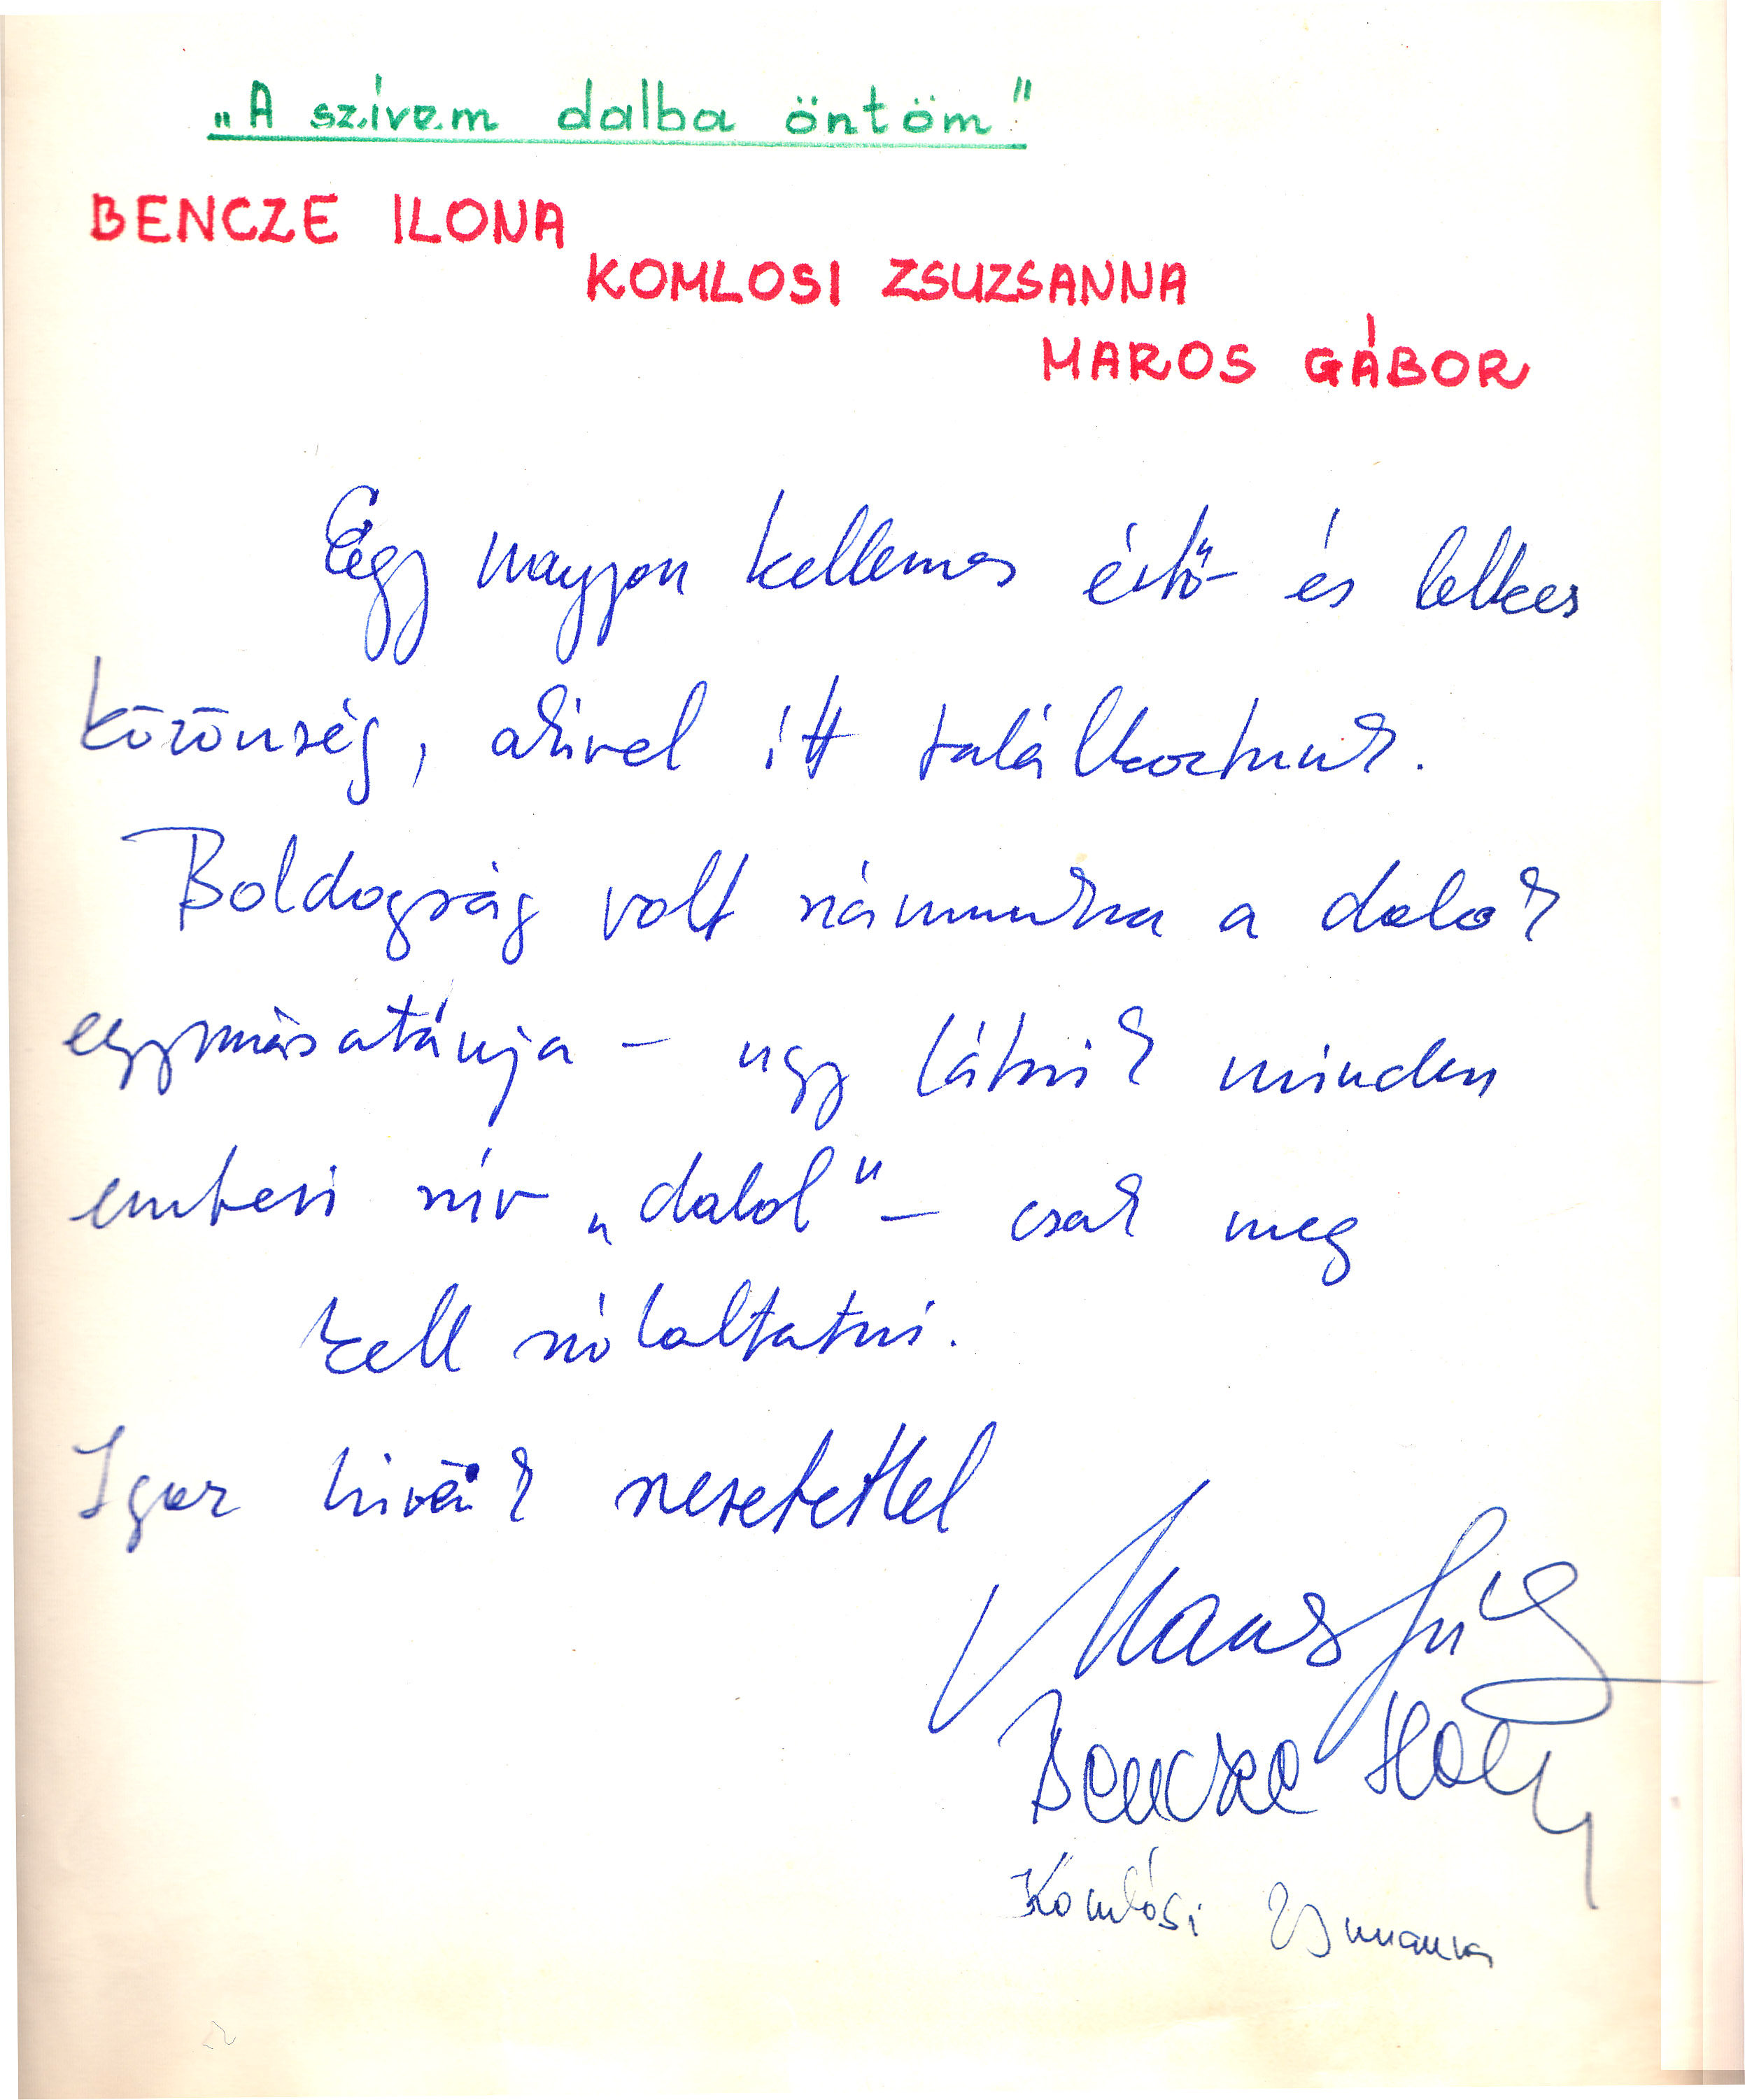 „A szívem dalba öntöm"
BENCZE ILONA
KOMLOSI ZSUZSANNA
MAROS GÁBOR
Egy nagyon kellemes értő és lelkes
közönség, akivel itt találkoztunk.
Boldogság volt számunkra a dalok
egymásatánja – ugy látszik minden
emberi szív „dalol" – csak meg
kell szólaltatni.
Igaz hívük szeretettel
Maros Gábor
Bencze Ilona
Komlósi Zsuzsanna